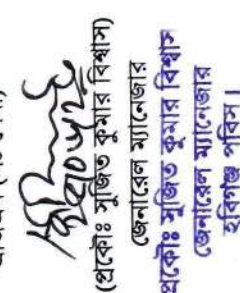 (প্রকৌঃ সুজিত কুমার বিশ্বাস)
জেনারেল ম্যানেজার
প্রকৌঃ সুজিত কুমার বিশ্বাস
জেনারেল ম্যানেজার
হবিগঞ্জ পবিস।